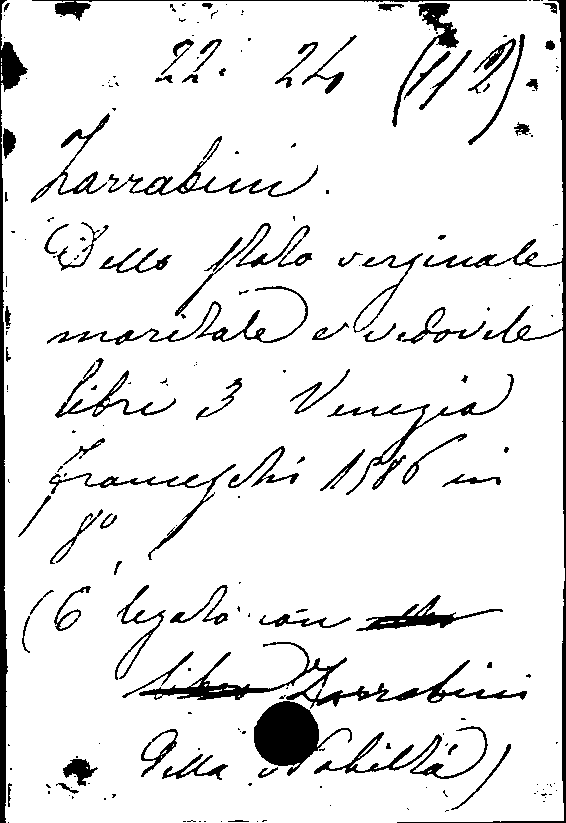 22. 24 (112)
Zarrabini.
Dello stato verginale
maritale e vedovile
libri 3 Venezia
Franceschi 1586 in
8º
(È legato con altro
libro Zarrabini
Della Nobiltà)